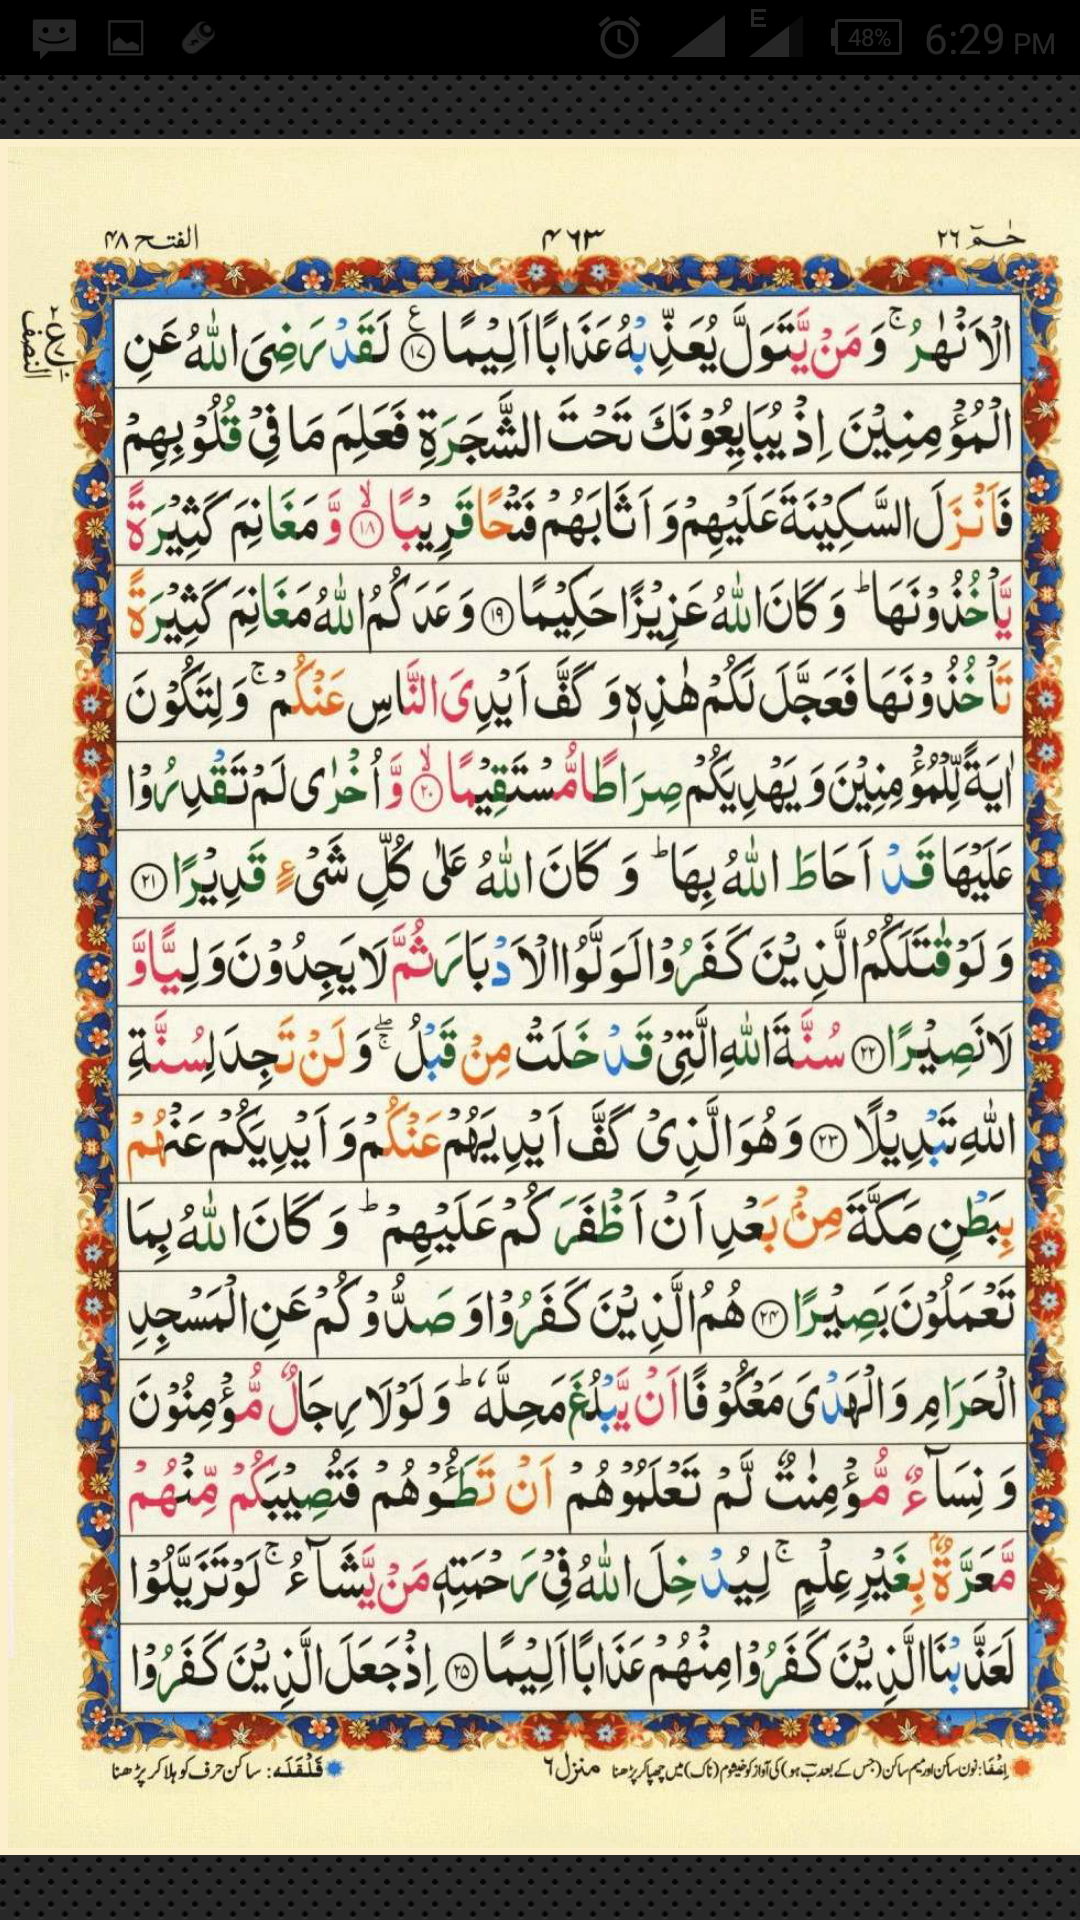 6:29 PM
48%
E
حٰمٓ ٢٦
٤٦٣
الفتح ٤٨
النصف
الْاَنْهٰرُ ۚ وَ مَنْ يَّتَوَلَّ يُعَذِّبْهُ عَذَابًا اَلِيْمًا ﴿١٧﴾ لَقَدْ رَضِيَ اللّٰهُ عَنِ
الْمُؤْمِنِيْنَ اِذْ يُبَايِعُوْنَكَ تَحْتَ الشَّجَرَةِ فَعَلِمَ مَا فِيْ قُلُوْبِهِمْ
فَاَنْزَلَ السَّكِيْنَةَ عَلَيْهِمْ وَ اَثَابَهُمْ فَتْحًا قَرِيْبًا ﴿١٨﴾ۙ وَّ مَغَانِمَ كَثِيْرَةً
يَّاْخُذُوْنَهَا ؕ وَ كَانَ اللّٰهُ عَزِيْزًا حَكِيْمًا ﴿١٩﴾ وَعَدَكُمُ اللّٰهُ مَغَانِمَ كَثِيْرَةً
تَاْخُذُوْنَهَا فَعَجَّلَ لَكُمْ هٰذِهٖ وَ كَفَّ اَيْدِيَ النَّاسِ عَنْكُمْ ۚ وَ لِتَكُوْنَ
اٰيَةً لِّلْمُؤْمِنِيْنَ وَ يَهْدِيَكُمْ صِرَاطًا مُّسْتَقِيْمًا ﴿٢٠﴾ۙ وَّ اُخْرٰى لَمْ تَقْدِرُوْا
عَلَيْهَا قَدْ اَحَاطَ اللّٰهُ بِهَا ؕ وَ كَانَ اللّٰهُ عَلٰى كُلِّ شَيْءٍ قَدِيْرًا ﴿٢١﴾
وَ لَوْ قٰتَلَكُمُ الَّذِيْنَ كَفَرُوْا لَوَلَّوُا الْاَدْبَارَ ثُمَّ لَا يَجِدُوْنَ وَلِيًّا وَّ
لَا نَصِيْرًا ﴿٢٢﴾ سُنَّةَ اللّٰهِ الَّتِيْ قَدْ خَلَتْ مِنْ قَبْلُ ۖۚ وَ لَنْ تَجِدَ لِسُنَّةِ
اللّٰهِ تَبْدِيْلًا ﴿٢٣﴾ وَ هُوَ الَّذِيْ كَفَّ اَيْدِيَهُمْ عَنْكُمْ وَ اَيْدِيَكُمْ عَنْهُمْ
بِبَطْنِ مَكَّةَ مِنْۢ بَعْدِ اَنْ اَظْفَرَكُمْ عَلَيْهِمْ ؕ وَ كَانَ اللّٰهُ بِمَا
تَعْمَلُوْنَ بَصِيْرًا ﴿٢٤﴾ هُمُ الَّذِيْنَ كَفَرُوْا وَ صَدُّوْكُمْ عَنِ الْمَسْجِدِ
الْحَرَامِ وَ الْهَدْيَ مَعْكُوْفًا اَنْ يَّبْلُغَ مَحِلَّهٗ ؕ وَ لَوْ لَا رِجَالٌ مُّؤْمِنُوْنَ
وَ نِسَآءٌ مُّؤْمِنٰتٌ لَّمْ تَعْلَمُوْهُمْ اَنْ تَطَـُٔوْهُمْ فَتُصِيْبَكُمْ مِّنْهُمْ
مَّعَرَّةٌۢ بِغَيْرِ عِلْمٍ ۚ لِيُدْخِلَ اللّٰهُ فِيْ رَحْمَتِهٖ مَنْ يَّشَآءُ ۚ لَوْ تَزَيَّلُوْا
لَعَذَّبْنَا الَّذِيْنَ كَفَرُوْا مِنْهُمْ عَذَابًا اَلِيْمًا ﴿٢٥﴾ اِذْ جَعَلَ الَّذِيْنَ كَفَرُوْا
اِخفا: نون ساکن اور میم ساکن (جس کے بعد ب ہو) کی آواز کو خیشوم (ناک) میں چھپا کر پڑھنا
منزل ٦
قَلْقَلَه: ساکن حرف کو ہلا کر پڑھنا